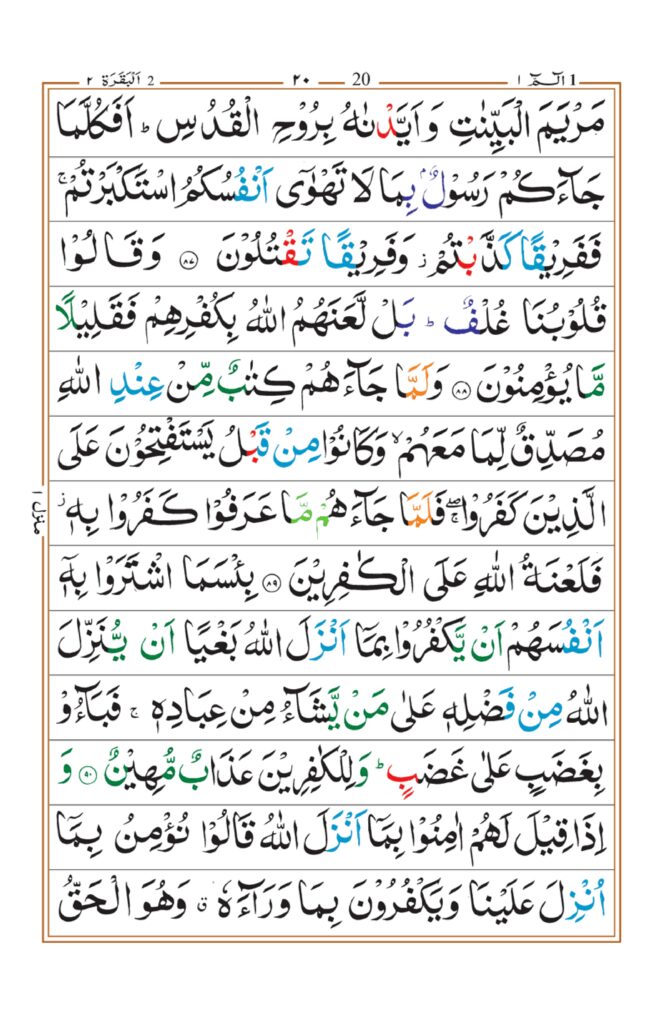 1 الٓـمّٓ ١ 20 ٢٠ 2 اَلْبَقَرَة ٢
مَرْيَمَ الْبَيِّنٰتِ وَ اَيَّدْنٰهُ بِرُوْحِ الْقُدُسِ ؕ اَفَكُلَّمَا
جَآءَكُمْ رَسُوْلٌۢ بِمَا لَا تَهْوٰٓى اَنْفُسُكُمُ اسْتَكْبَرْتُمْ ۚ
فَفَرِيْقًا كَذَّبْتُمْ ؗ وَفَرِيْقًا تَقْتُلُوْنَ ﴿٨٧﴾ وَقَالُوْا
قُلُوْبُنَا غُلْفٌ ؕ بَلْ لَّعَنَهُمُ اللّٰهُ بِكُفْرِهِمْ فَقَلِيْلًا
مَّا يُؤْمِنُوْنَ ﴿٨٨﴾ وَلَمَّا جَآءَهُمْ كِتٰبٌ مِّنْ عِنْدِ اللّٰهِ
مُصَدِّقٌ لِّمَا مَعَهُمْ ۙ وَكَانُوْا مِنْ قَبْلُ يَسْتَفْتِحُوْنَ عَلَى
الَّذِيْنَ كَفَرُوْا ۖۚ فَلَمَّا جَآءَهُمْ مَّا عَرَفُوْا كَفَرُوْا بِهٖ ؗ
فَلَعْنَةُ اللّٰهِ عَلَى الْكٰفِرِيْنَ ﴿٨٩﴾ بِئْسَمَا اشْتَرَوْا بِهٖٓ
اَنْفُسَهُمْ اَنْ يَّكْفُرُوْا بِمَآ اَنْزَلَ اللّٰهُ بَغْيًا اَنْ يُّنَزِّلَ
اللّٰهُ مِنْ فَضْلِهٖ عَلٰى مَنْ يَّشَآءُ مِنْ عِبَادِهٖ ۚ فَبَآءُوْ
بِغَضَبٍ عَلٰى غَضَبٍ ؕ وَلِلْكٰفِرِيْنَ عَذَابٌ مُّهِيْنٌ ﴿٩٠﴾ وَ
اِذَا قِيْلَ لَهُمْ اٰمِنُوْا بِمَآ اَنْزَلَ اللّٰهُ قَالُوْا نُؤْمِنُ بِمَآ
اُنْزِلَ عَلَيْنَا وَيَكْفُرُوْنَ بِمَا وَرَآءَهٗ ۗ وَهُوَ الْحَقُّ
منزل ١